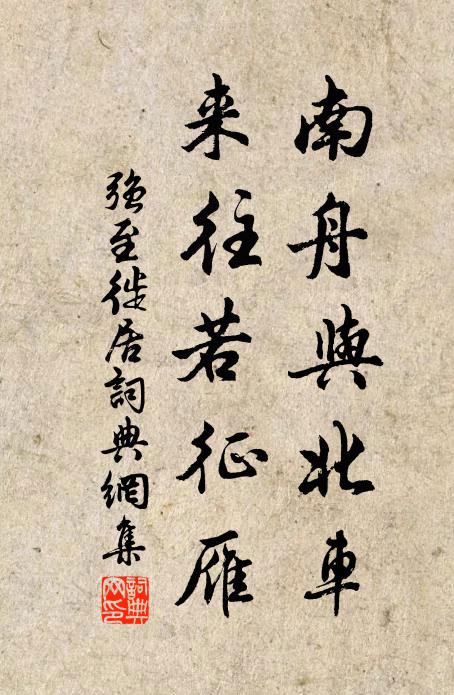 南舟與北車
来往若征雁
強至徙居詞典網集
詞典
网印